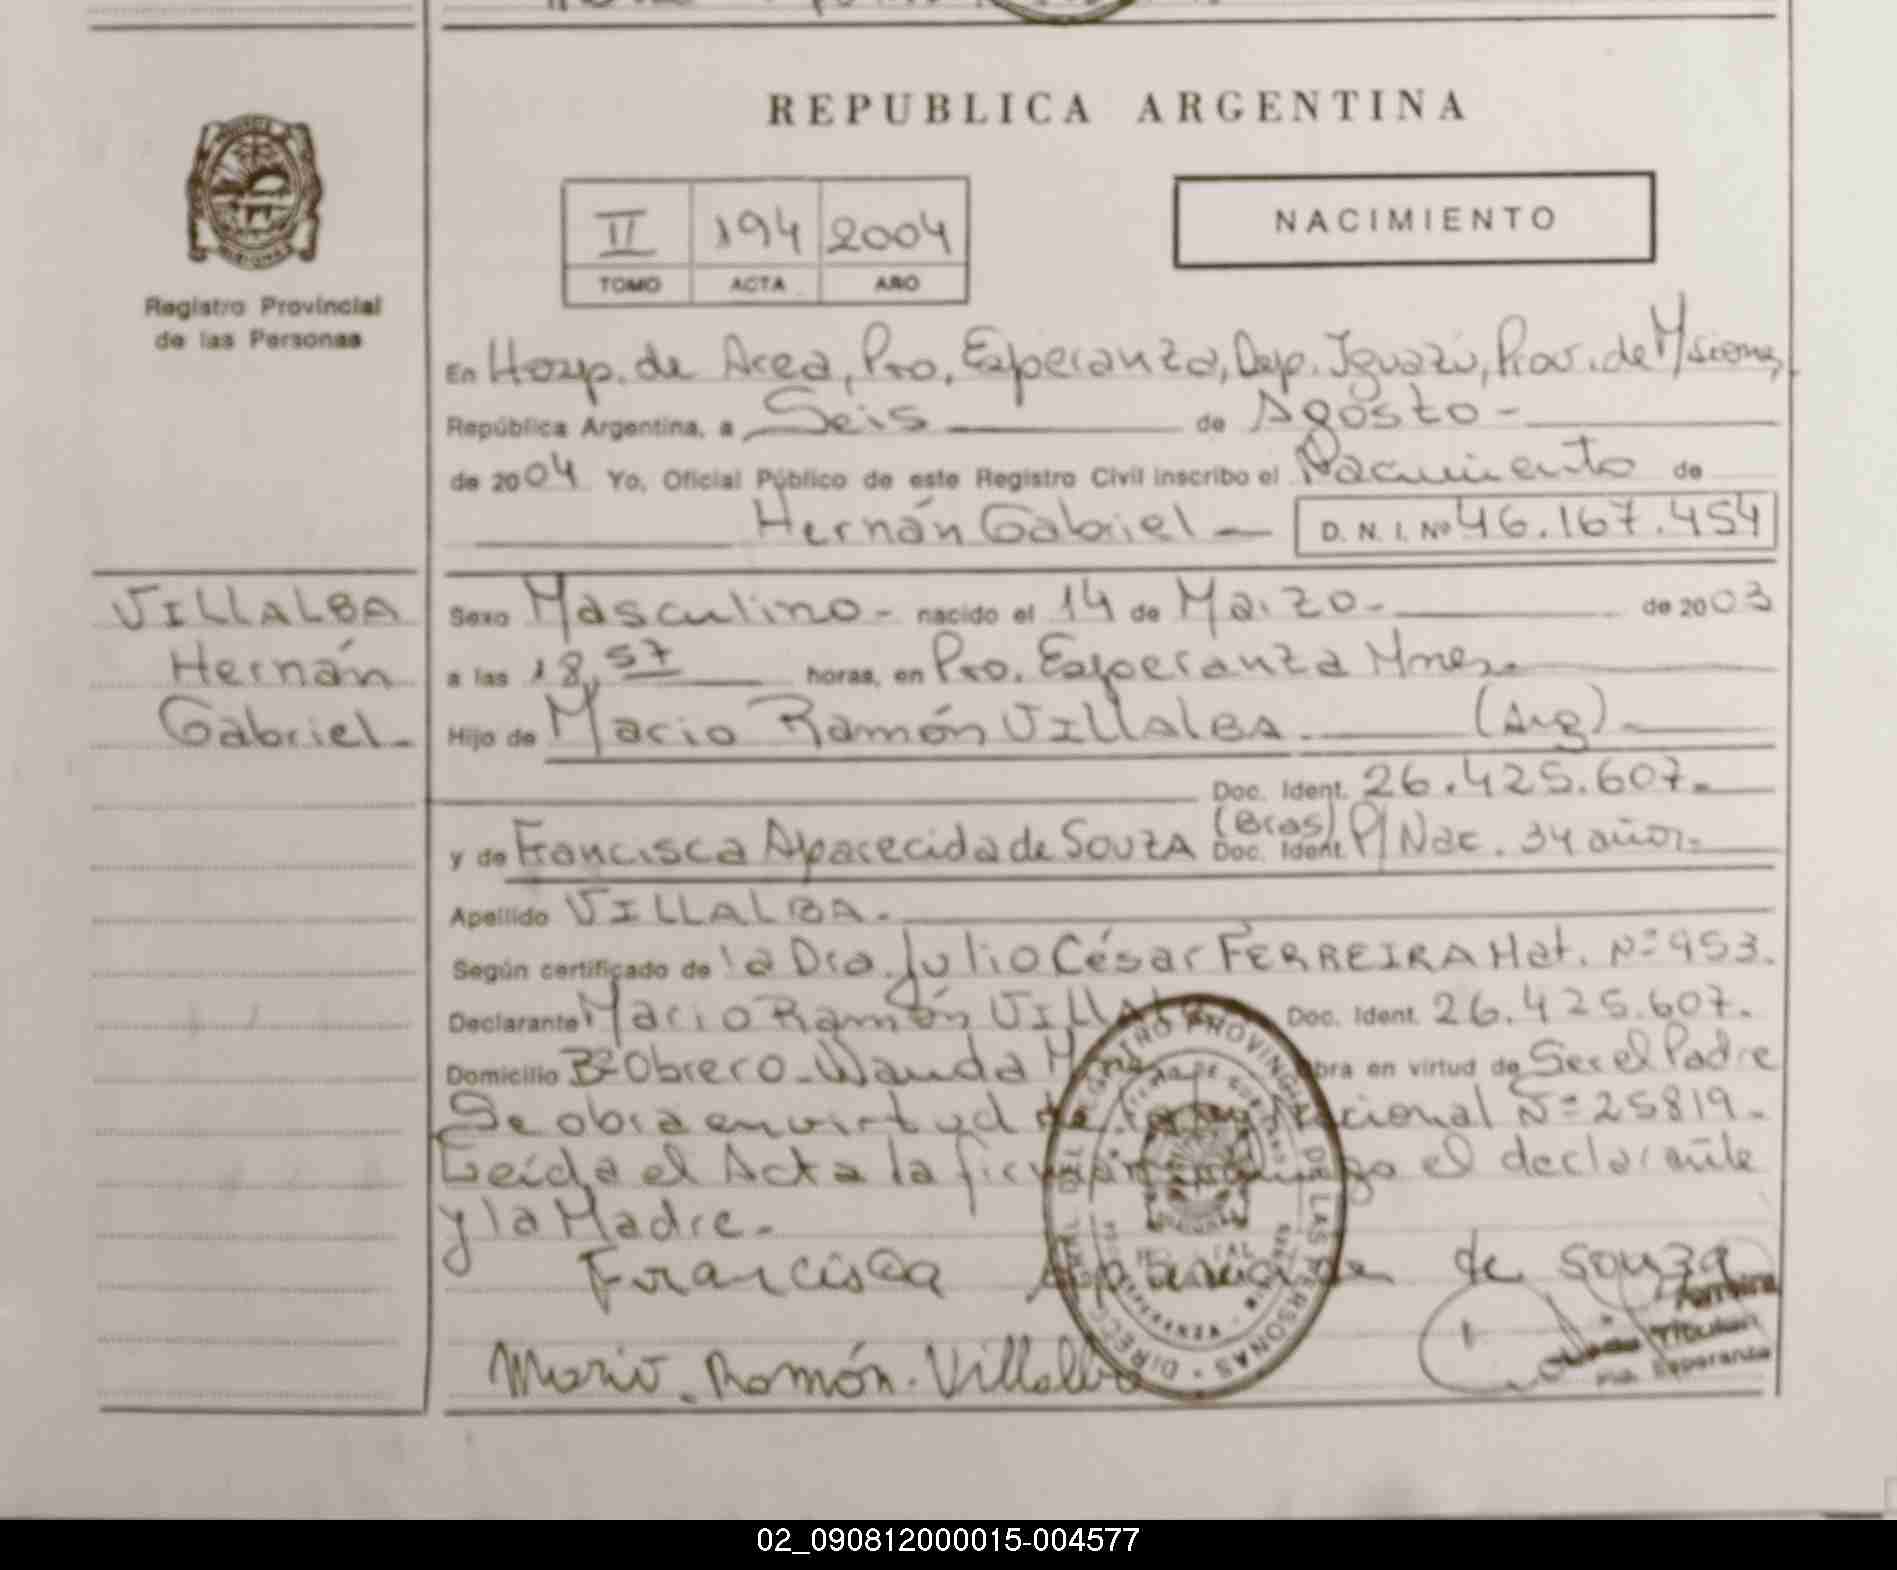 REPUBLICA ARGENTINA
II 194 2004
TOMO ACTA AÑO
NACIMIENTO
Registro Provincial
de las Personas
En Hosp. de Area, Pto. Esperanza, Dep. Iguazú, Prov. de Misiones,
República Argentina, a Seis de Agosto -
de 2004 Yo, Oficial Público de este Registro Civil inscribo el Nacimiento de
Hernán Gabriel - D. N. I. Nº 46.167.454
VILLALBA
Hernán
Gabriel -
Sexo Masculino - nacido el 14 de Marzo - de 2003
a las 18,57 horas, en Pto. Esperanza Mnes.
Hijo de Mario Ramón VILLALBA. (Arg) -
Doc. Ident. 26.425.607.-
y de Francisca Aparecida de SOUZA (Bras) Doc. Ident. P/ Nac. 34 años.-
Apellido VILLALBA.
Según certificado de la Dra. Julio César FERREIRA Mat. Nº 953.
Declarante Mario Ramón Doc. Ident. 26.425.607.
Domicilio Bº Obrero - Wanda Obra en virtud de Ser el Padre
Se obra en virtud de Nacional Nº 25819.-
Leída el Acta la el declarante
y la Madre.-
Francisca de Souza
Mario Ramón Villalba
REGISTRO PROVINCIAL DE LAS PERSONAS
Titular
Pto. Esperanza
02_090812000015-004577